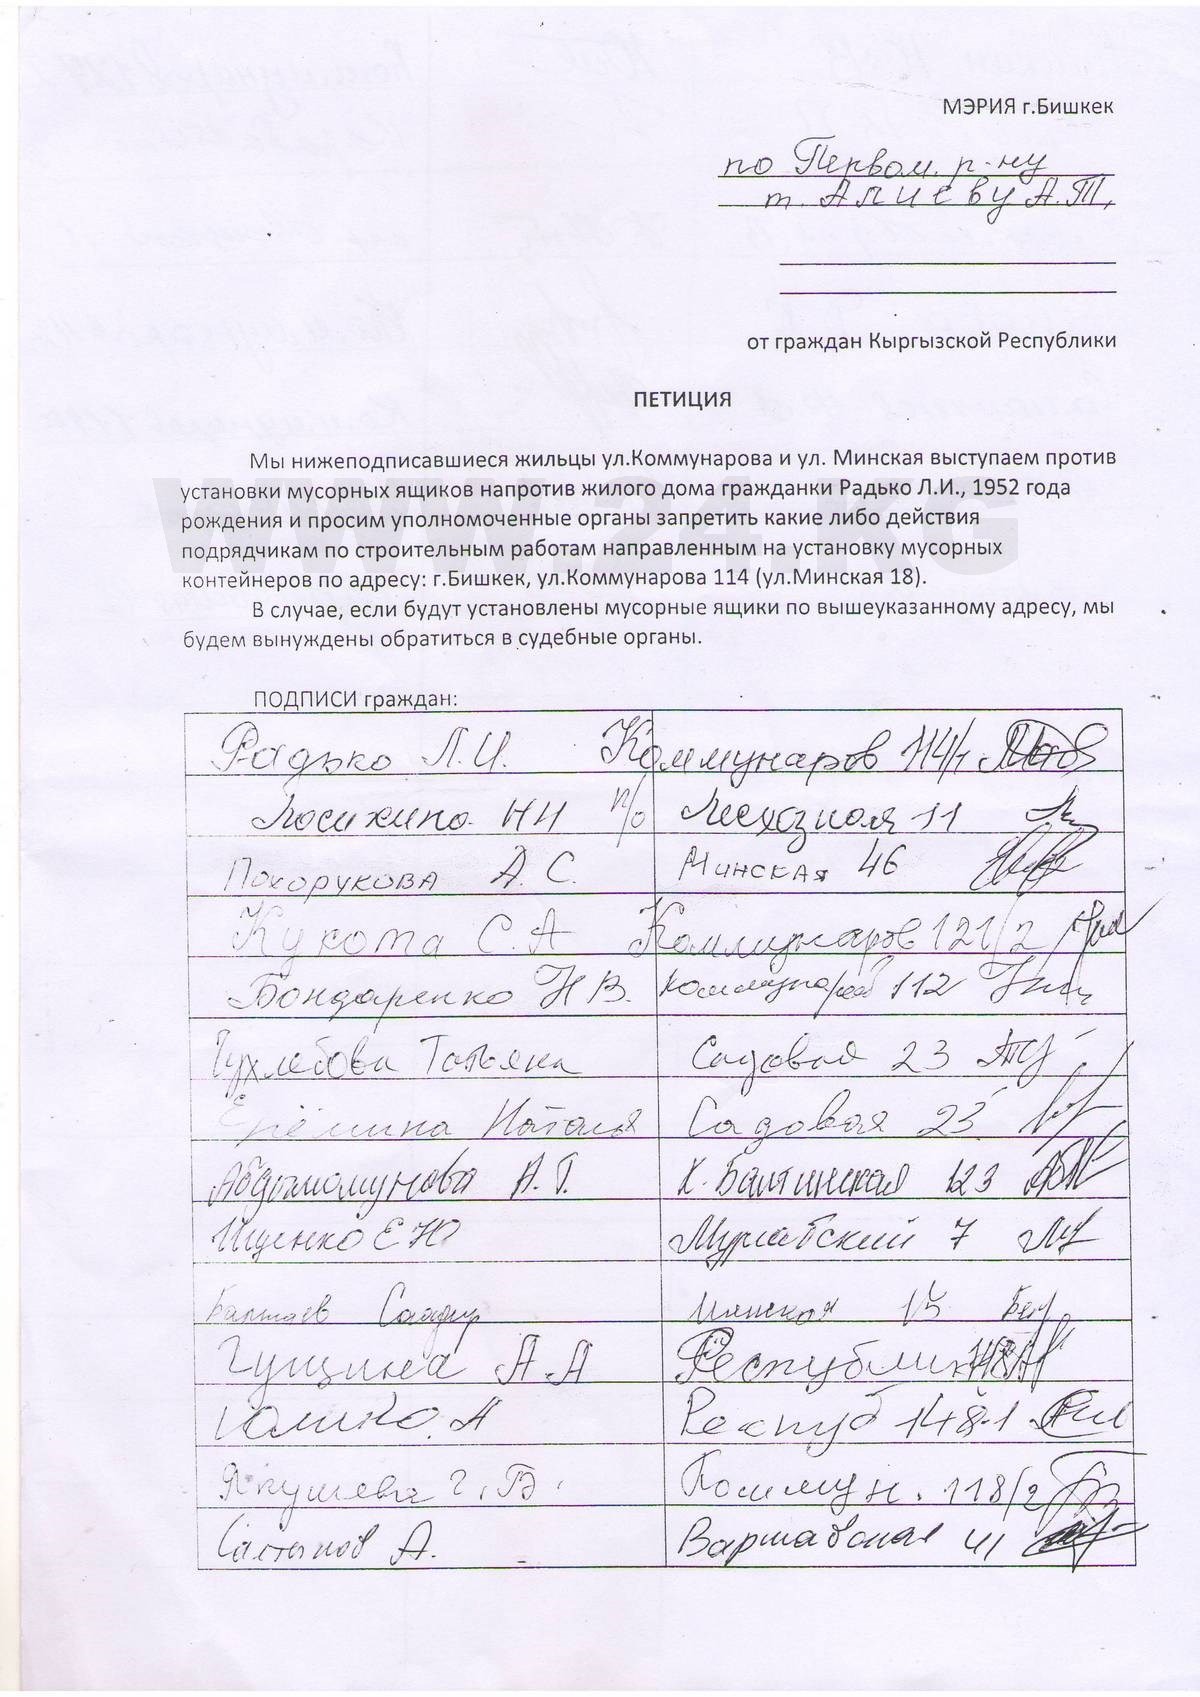 МЭРИЯ г.Бишкек
по Первом. р-ну
т. Алиеву А.Т.
от граждан Кыргызской Республики
ПЕТИЦИЯ
Мы нижеподписавшиеся жильцы ул.Коммунарова и ул. Минская выступаем против
установки мусорных ящиков напротив жилого дома гражданки Радько Л.И., 1952 года
рождения и просим уполномоченные органы запретить какие либо действия
подрядчикам по строительным работам направленным на установку мусорных
контейнеров по адресу: г.Бишкек, ул.Коммунарова 114 (ул.Минская 18).
В случае, если будут установлены мусорные ящики по вышеуказанному адресу, мы
будем вынуждены обратиться в судебные органы.
WWW.24.KG
ПОДПИСИ граждан:
Радько Л.И. Коммунаров 114/1
НН п/о Лесхозная 11
Похорукова А.С. Минская 46
Кукота С.А Коммунаров 121/2
Бондаренко Н В. Коммунаров 112
Татьяна Садовая 23
Ерёмина Наталья Садовая 23
Абдымомунова А.Г. К. Балтинская 123
Ищенко Е Ю Мургабский 7
Минская 15
Гущина А.А
А Респуб 148-1
Якушева Г.В. Коммун. 118/2
Салтынов А. Варшавская 41